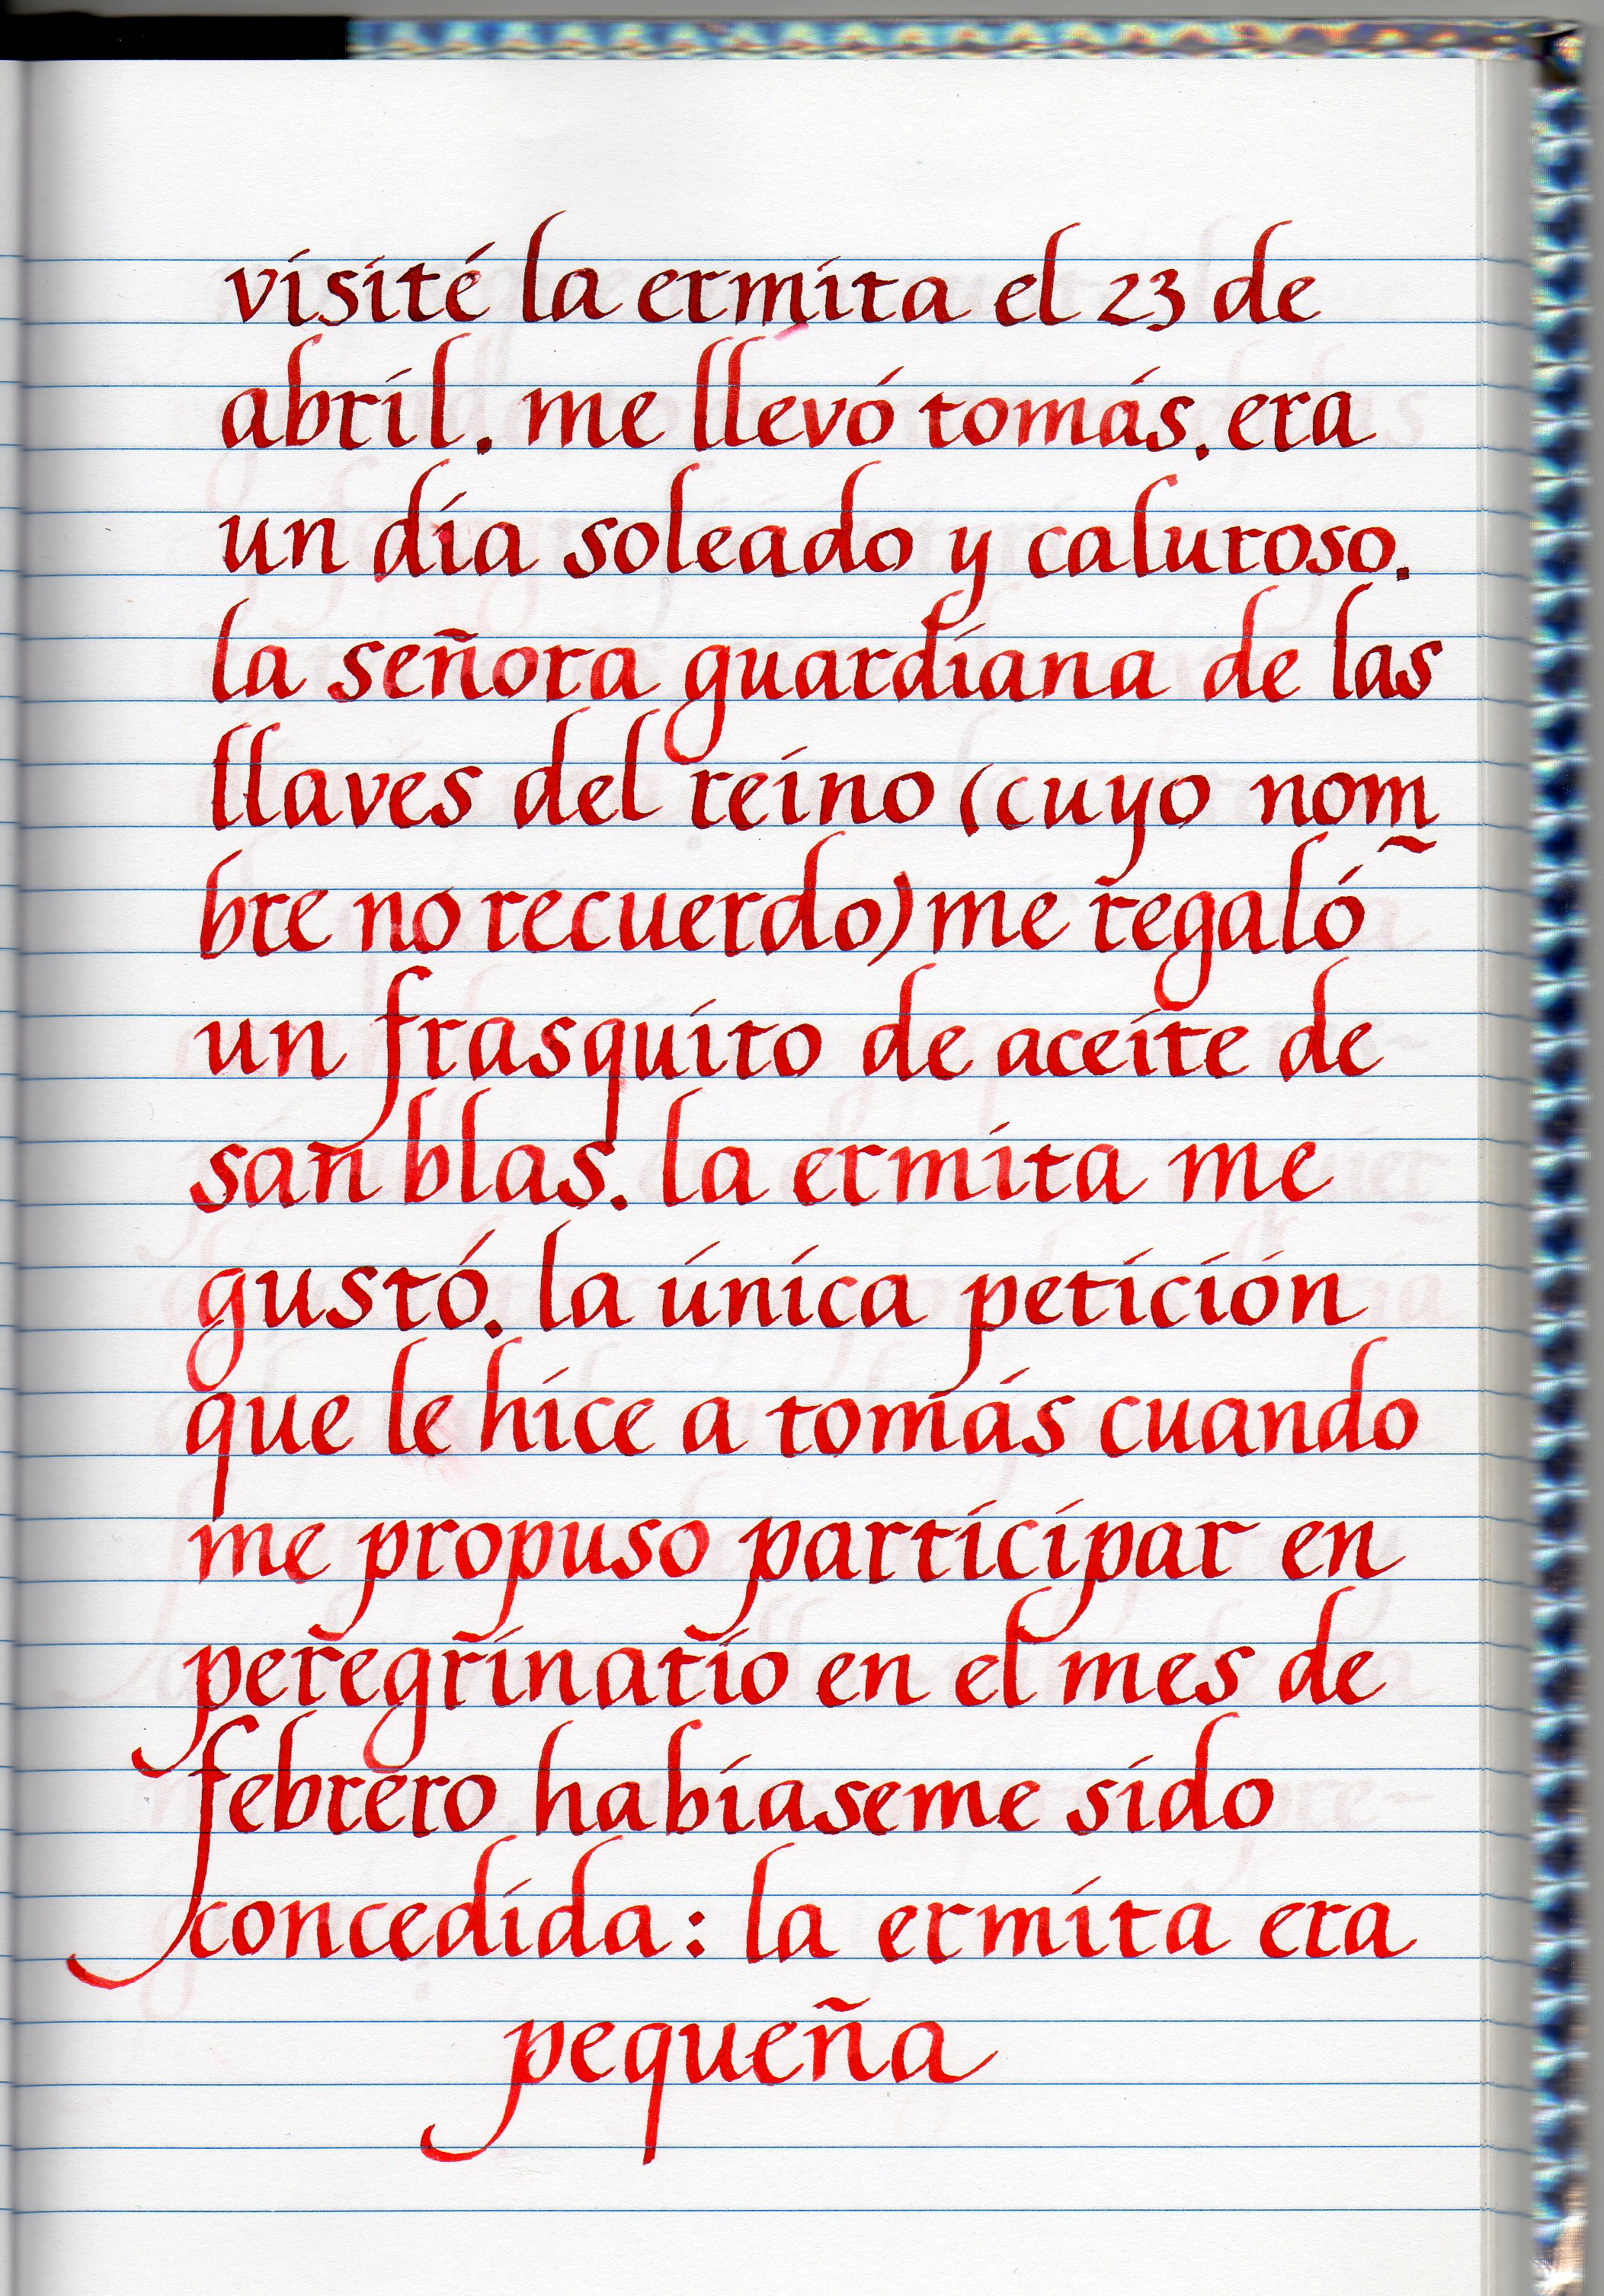 visité la ermita el 23 de
abril. me llevó tomás. era
un día soleado y caluroso.
la señora guardiana de las
llaves del reino (cuyo nom~
bre no recuerdo) me regaló
un frasquito de aceite de
san blas. la ermita me
gustó. la única petición
que le hice a tomás cuando
me propuso participar en
peregrinatio en el mes de
febrero habíaseme sido
concedida: la ermita era
pequeña